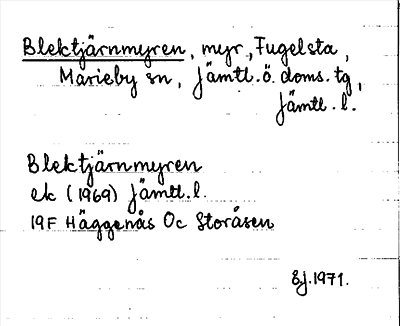 Blektjärnmyren, myr, Fugelsta,
Marieby sn, Jämtl. ö. doms. tg,
Jämtl. l.
Blektjärnmyren
ek (1969) Jämtl. l.
19F Häggenås Oc Storåsen
Ej. 1971.